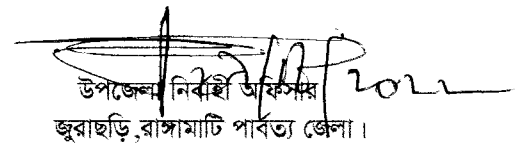 উপজেলা নির্বাহী অফিসার
জুরাছড়ি,রাঙ্গামাটি পার্বত্য জেলা।